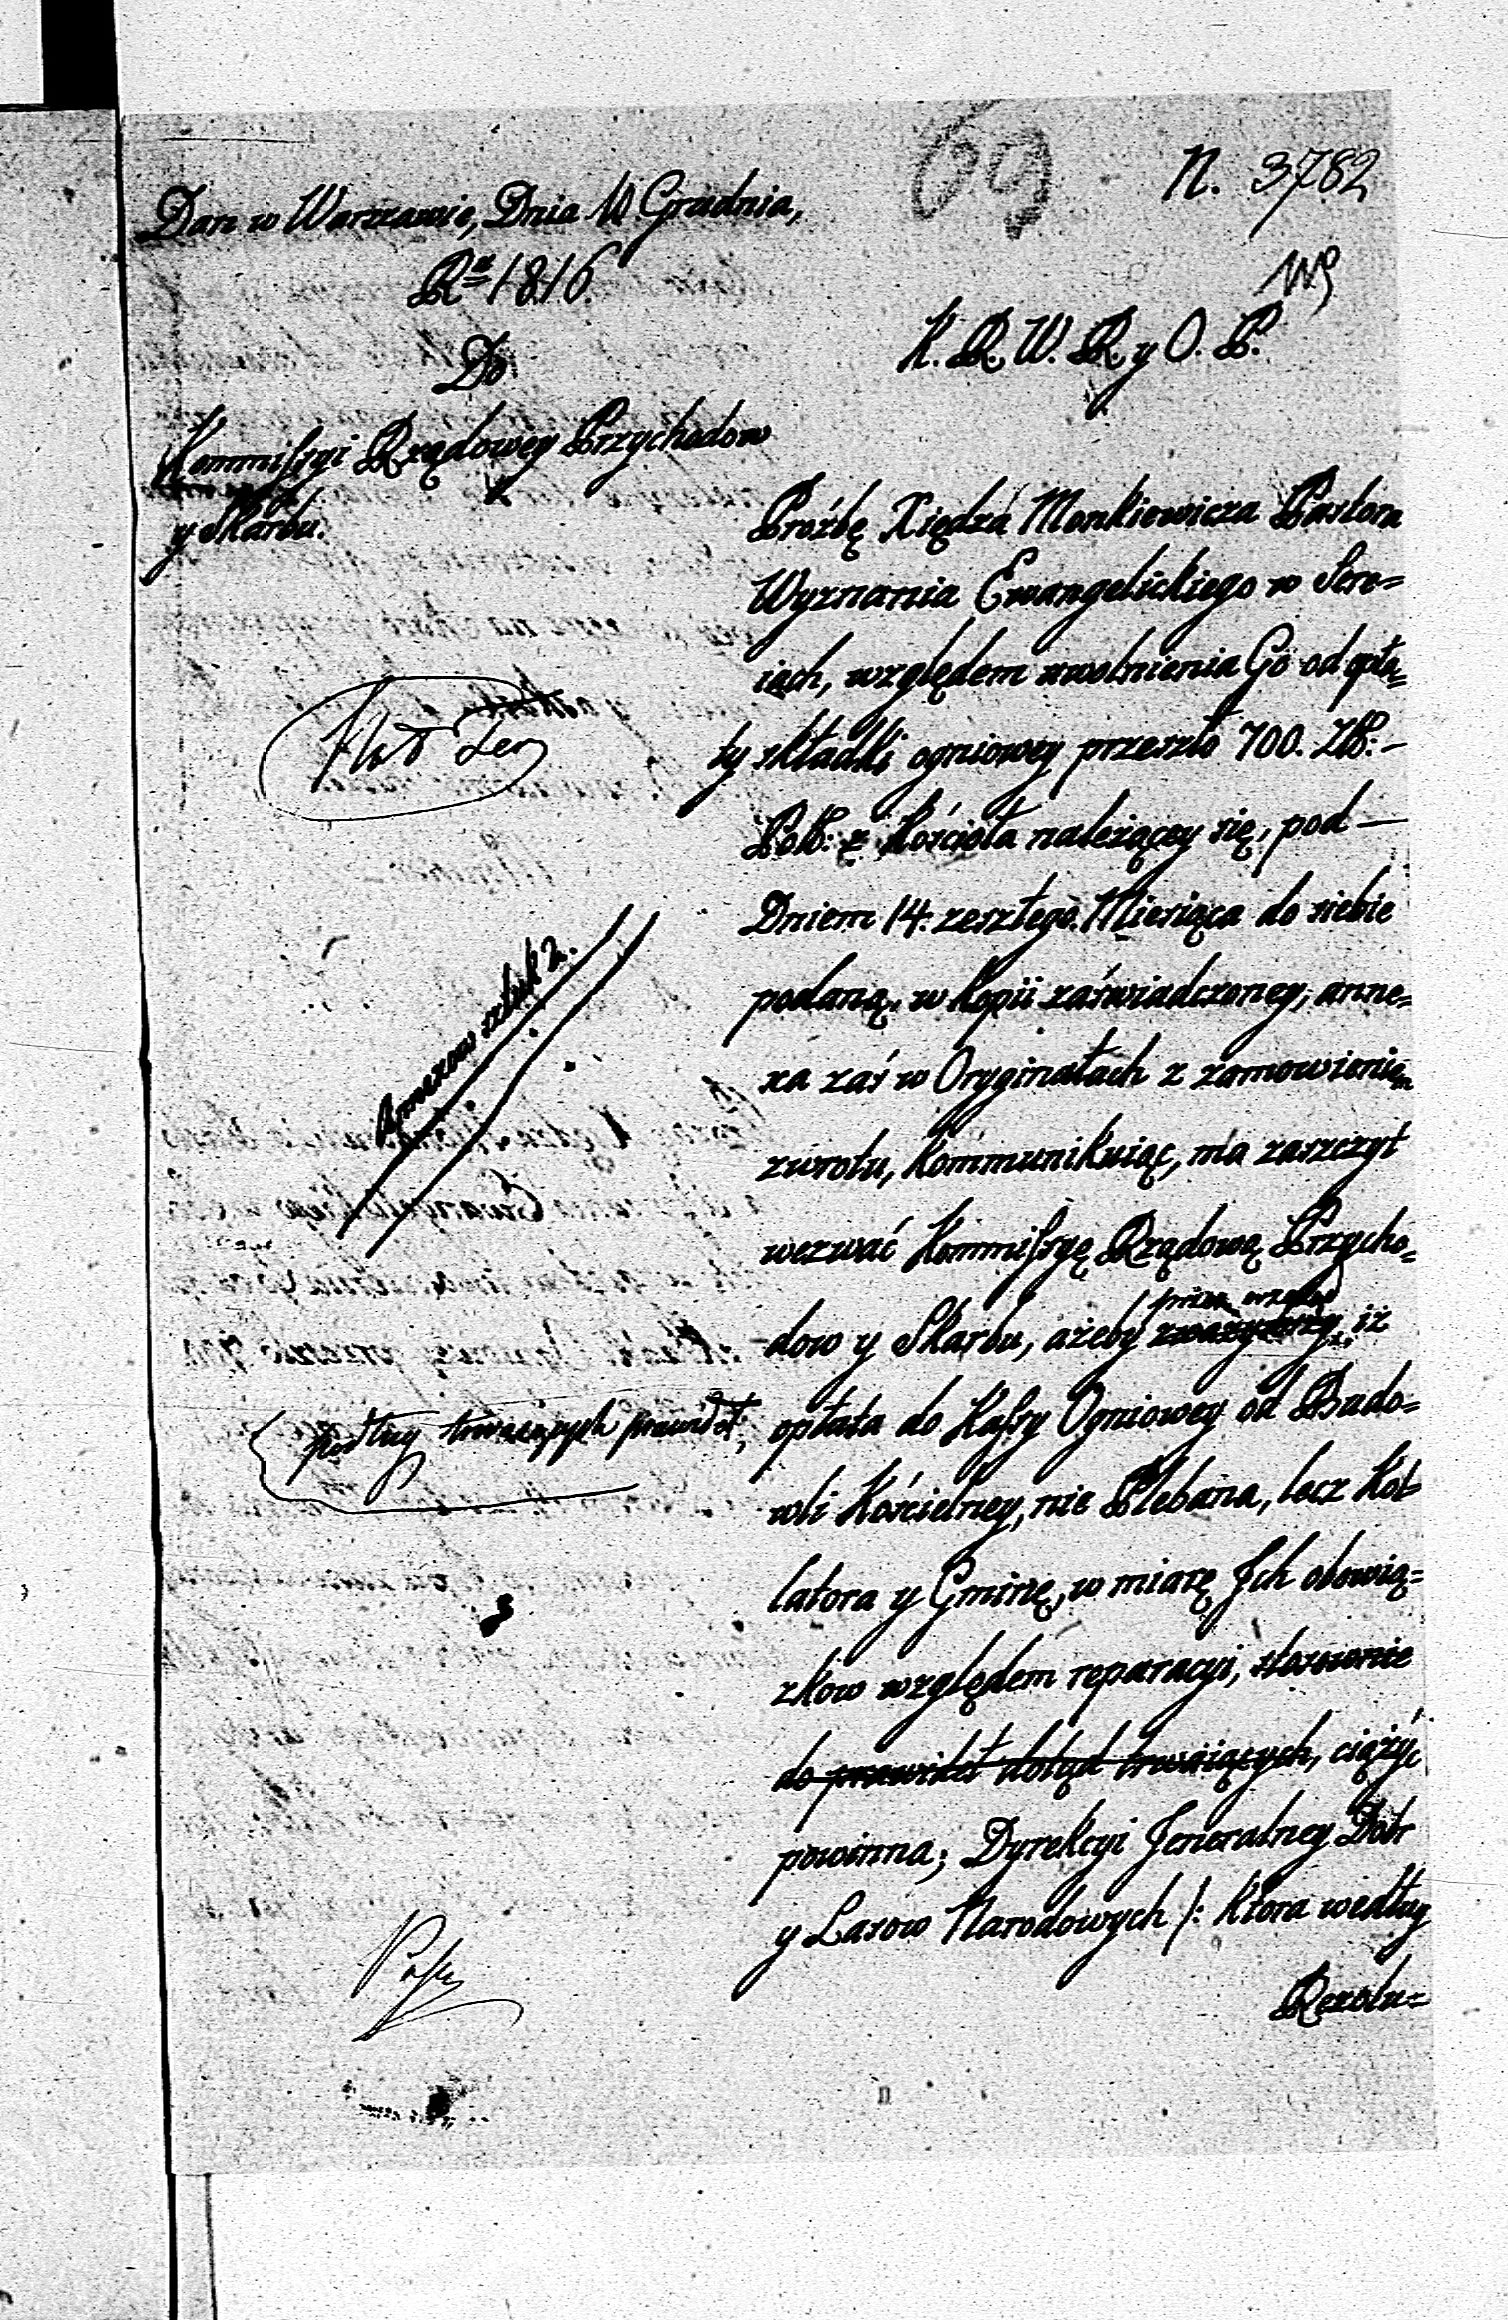 69
N. 3782
Dan w Warszawie, Dnia 11 Grudnia,
Rᵃ 1816.
Do
Kommissyi Rządowey Przychodow
y Skarbu.
K. R. W. R. y O. P.
Proźbę Xiędza Monkiewicza Pastora
Wyznania Ewangelickiego w Sere=
iach, względem uwolnienia Go od opła=
ty składki ogniowey przeszło 700. Zł: –
Pol: z Kościoła należącey się, pod —
Dniem 14. zeszłego Miesiąca do siebie
podaną, w kopii zaświadczoney, anne=
xa zaś w Oryginałach z zamowieniem
zwrotu, kommunikuiąc, ma zaszczyt
wezwać Kommissyę Rządową Przycho=
przez wzgląd
dow y Skarbu, ażeby zważywszy, iż
opłata do Kassy Ogniowey od Budo=
wli Kościelney, nie Plebana, lecz Kol
latora y Gminę, w miarę Ich obowią=
zkow względem reparacyi, stosownie
do prawideł dotąd trwaiących, ciążyć
powinna; Dyrekcyi Jeneralney Dobr
y Lasow Narodowych /: ktora według
Rezolu=
Annexow sztuk 2.
podług trwaiących prawideł,